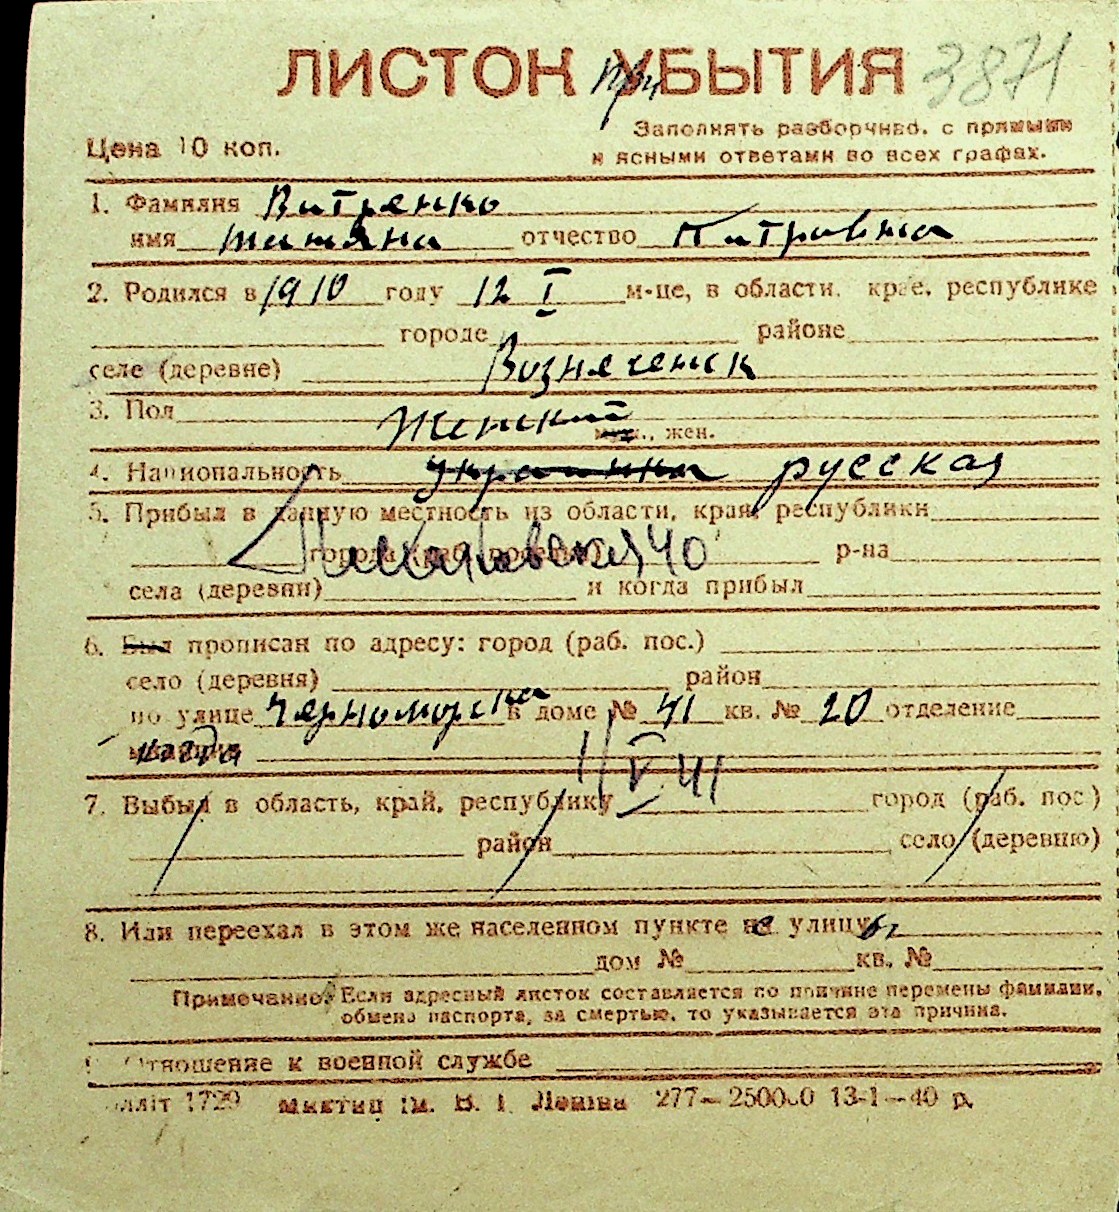 ЛИСТОК УБЫТИЯ При 3871
Цена 10 коп.
Заполнять разборчиво, с прямыми
и ясными ответами во всех графах.
1. Фамилия Витренко
имя Татяна отчество Питровна
2. Родился в 1910 году 12 I м-це, в области, крае, республике
городе районе
селе (деревне) Вознесенск
3. Пол Женский
муж., жен.
4. Национальность украинка русская
5. Прибыл в данную местность из области, края, республики
города (раб. поселка) 40 р-на
села (деревни) и когда прибыл
6. Был прописан по адресу: город (раб. пос.)
село (деревня) район
по улице Черноморска в доме № 41 кв. № 20 отделение
милиции когда
1/V 41
7. Выбыл в область, край, республику город (раб. пос.)
район село (деревню)
8. Или переехал в этом же населенном пункте на улицу
дом № кв. №
Примечание: Если адресный листок составляется по причине перемены фамилии,
обмена паспорта, за смертью, то указывается эта причина.
9. Отношение к военной службе
1729 ім. В. І. Леніна 277—250000 13-1—40 р.